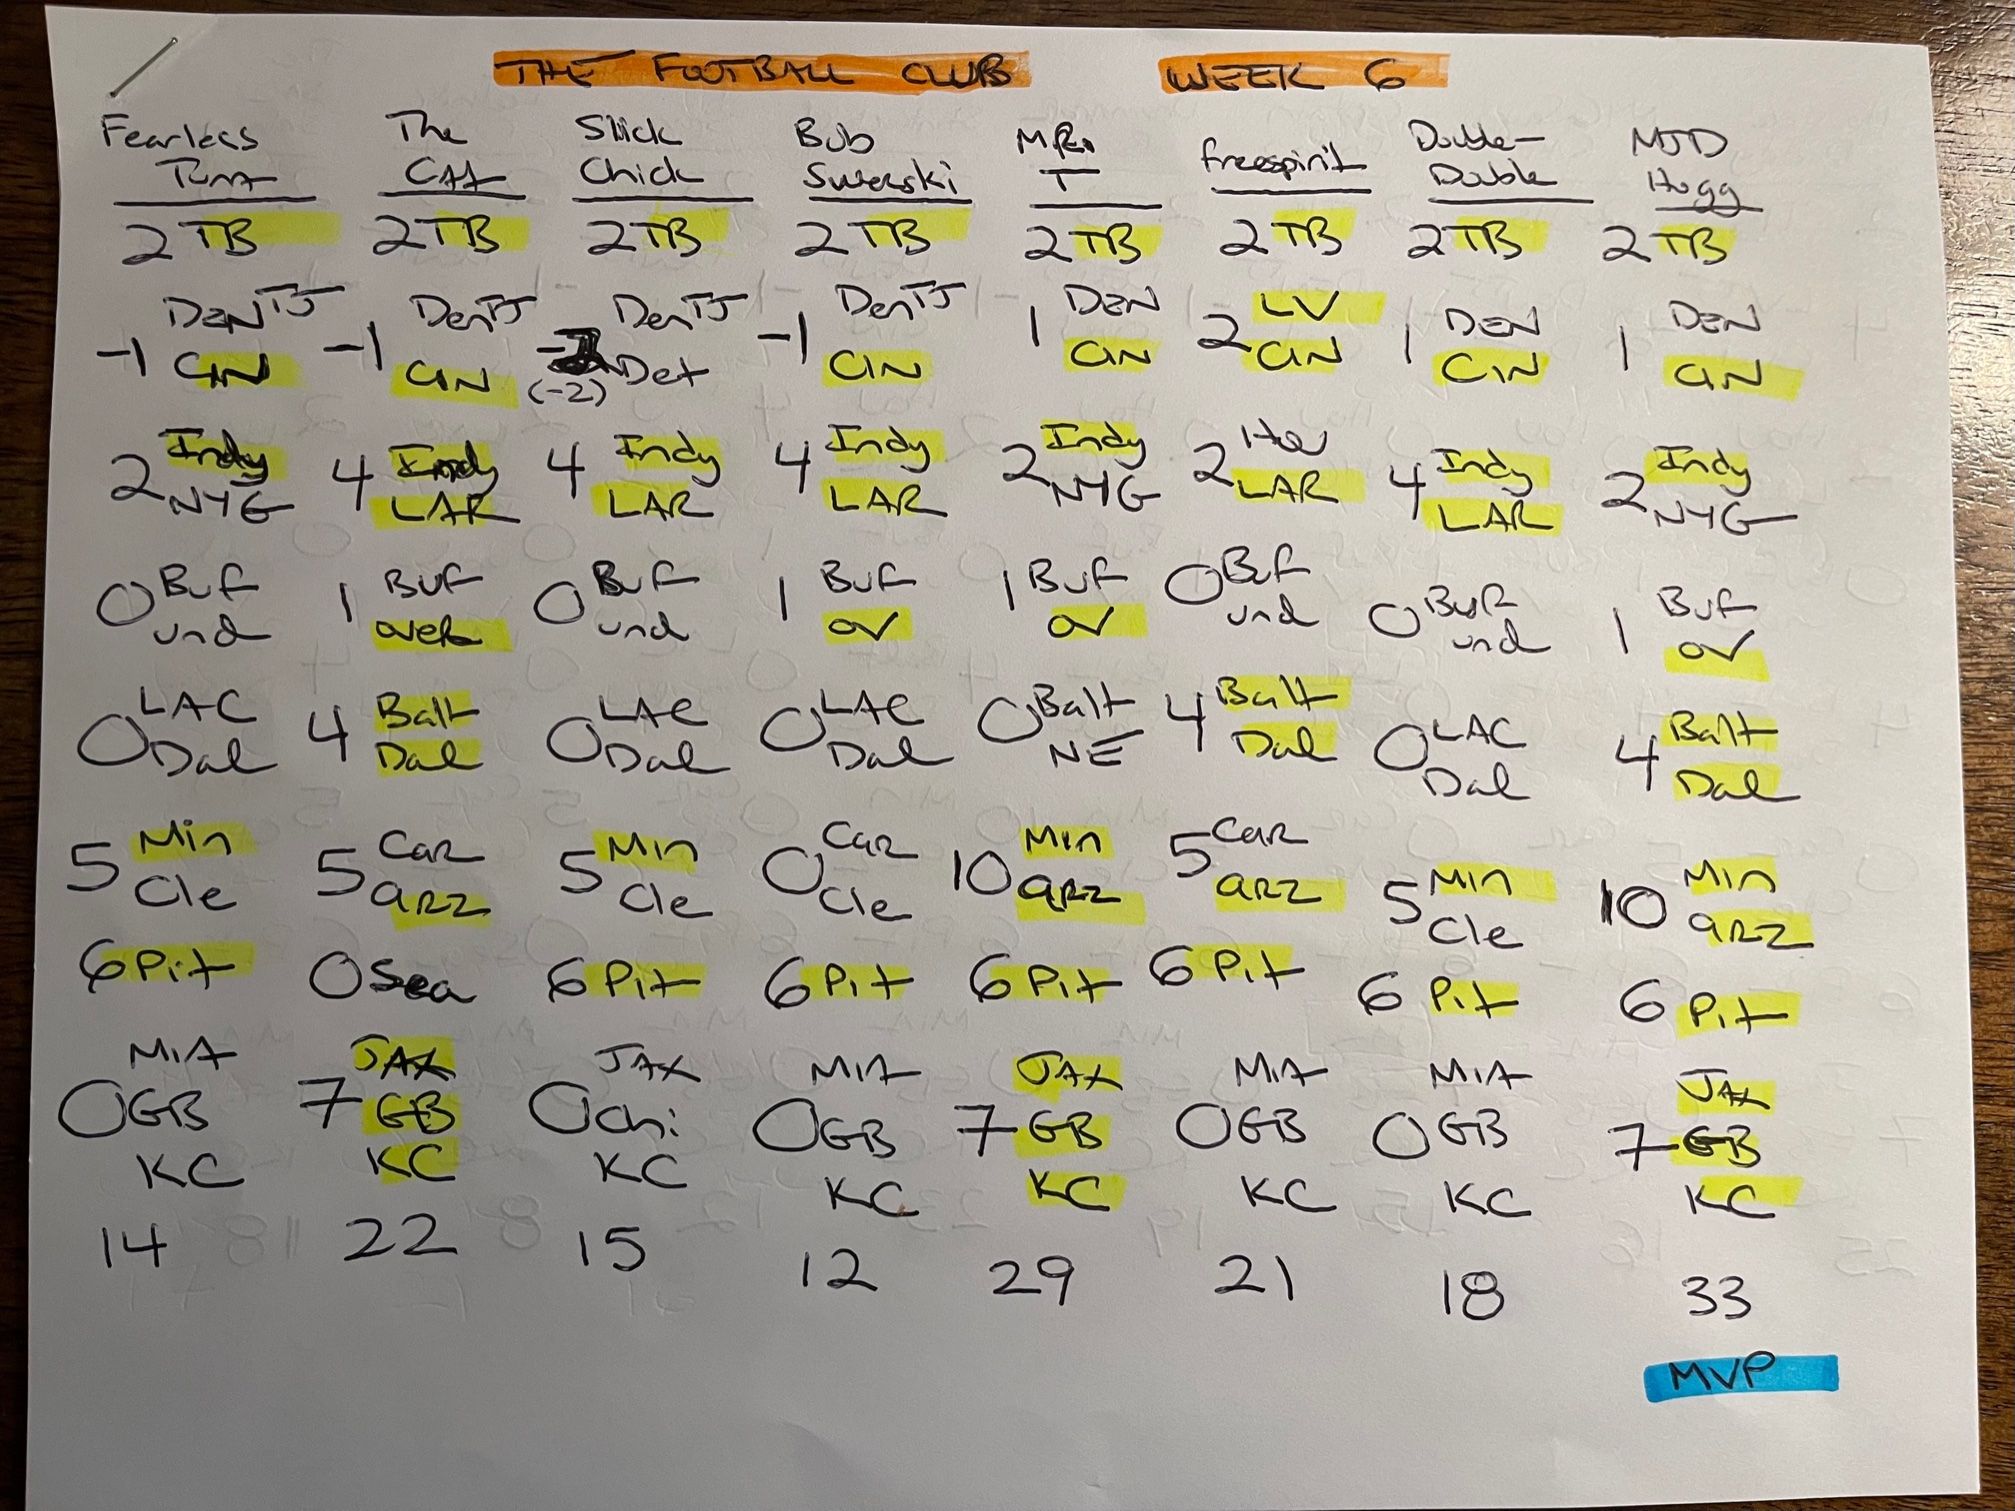 THE FOOTBALL CLUB WEEK 6
Fearless The Slick Bob MR. freespirit Double- MJD
Tuna CAA Chick Swerski T Double Hogg
2 TB 2 TB 2 TB 2 TB 2 TB 2 TB 2 TB 2 TB
DEN TJ Den TJ Den TJ Den TJ DEN LV DEN DEN
-1 CIN -1 CIN (-2) Det -1 CIN 1 CIN 2 CIN 1 CIN 1 CIN
Indy Indy Indy Indy Indy Hou Indy Indy
2 NYG 4 LAR 4 LAR 4 LAR 2 NYG 2 LAR 4 LAR 2 NYG
Buf Buf Buf Buf Buf Buf Buf Buf
0 und 1 over 0 und 1 ov 1 ov 0 und 0 und 1 ov
LAC Balt LAC LAC Balt Balt LAC Balt
0 Dal 4 Dal 0 Dal 0 Dal 0 NE 4 Dal 0 Dal 4 Dal
Min Car Min Car Min Car Min Min
5 Cle 5 ARZ 5 Cle 0 Cle 10 ARZ 5 ARZ 5 Cle 10 ARZ
6 Pit 0 Sea 6 Pit 6 Pit 6 Pit 6 Pit 6 Pit 6 Pit
MIA JAX JAX MIA JAX MIA MIA JAX
0 GB 7 GB 0 Chi 0 GB 7 GB 0 GB 0 GB 7 GB
KC KC KC KC KC KC KC KC
14 22 15 12 29 21 18 33
MVP